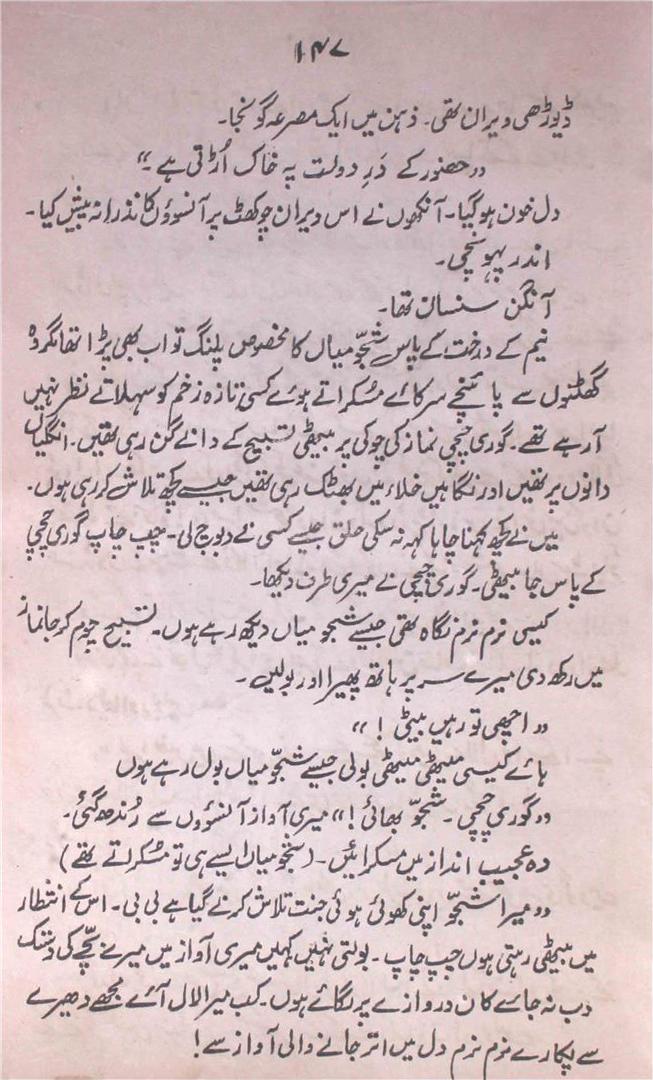 ۱۴۷
ڈیوڑھی ویران تھی۔ ذہن میں ایک مصرعہ گونجا۔
"حضور کے دَرِ دولت پہ خاک اُڑتی ہے۔"
دل خون ہوگیا۔ آنکھوں نے اس ویران چوکھٹ پر آنسوؤں کا نذرانہ پیش کیا۔
اندر پہونچی۔
آنگن سنسان تھا۔
نیم کے درخت کے پاس شجّو میاں کا مخصوص پلنگ تو اب بھی پڑا تھا مگر وہ
گھٹنوں سے پائنچے سرکائے مُسکراتے ہوئے کسی تازہ زخم کو سہلاتے نظر نہیں
آرہے تھے۔ گوری چچی نماز کی چوکی پر بیٹھی تسبیح کے دانے گن رہی تھیں۔ انگلیاں
دانوں پر تھیں اور نگاہیں خلاء میں بھٹک رہی تھیں جیسے کچھ تلاش کر رہی ہوں۔
میں نے کچھ کہنا چاہا کہہ نہ سکی حلق جیسے کسی نے دبوچ لی۔ چپ چاپ گوری چچی
کے پاس جا بیٹھی۔ گوری چچی نے میری طرف دیکھا۔
کیسی نرم نرم نگاہ تھی جیسے شجو میاں دیکھ رہے ہوں۔ تسبیح چوم کر جانماز
میں رکھ دی میرے سر پر ہاتھ پھیرا اور بولیں۔
"اچھی تو رہیں بیٹی !"
ہائے کیسی میٹھی میٹھی بولی جیسے شجوّ میاں بول رہے ہوں
"گوری چچی۔ شجوّ بھائی !" میری آواز آنسوؤں سے رُندھ گئی۔
وہ عجیب انداز میں مسکرائیں۔ (شجو میاں ایسے ہی تو مُسکراتے تھے)
"میرا شجوّ اپنی کھوئی ہوئی جنت تلاش کرنے گیا ہے بی بی۔ اس کے انتظار
میں بیٹھی رہتی ہوں چپ چاپ۔ بولتی نہیں کہیں میری آواز میں میرے بچّے کی دستک
دب نہ جائے کان دروازے پر لگائے ہوں۔ کب میرا لال آئے مجھے دھیرے
سے پکارے نرم نرم دل میں اتر جانے والی آواز سے !